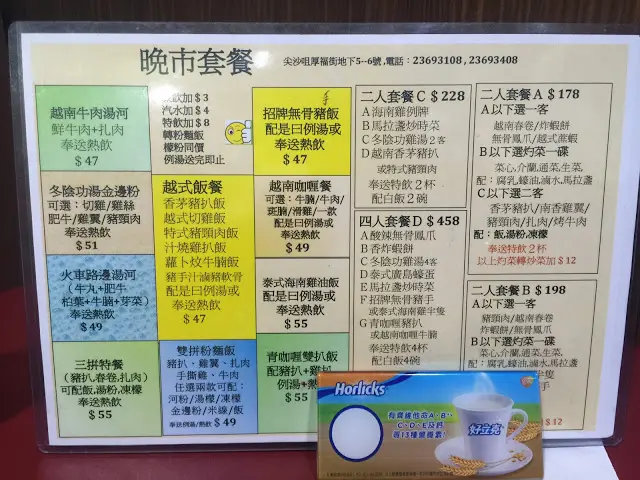 晚市套餐
尖沙咀厚福街地下5--6號,電話:23693108,23693408
越南牛肉湯河
鮮牛肉+扎肉
奉送熱飲
$ 47
飲加 $ 3
汽水加 $ 4
特飲加 $ 8
轉粉麵飯
檬粉同價
例湯送完即止
招牌無骨豬飯
配是日例湯或
奉送熱飲
$ 47
冬陰功湯金邊粉
可選:切雞/雞絲
肥牛/雞翼/豬頸肉
奉送熱飲
$51
越式飯餐
香茅豬扒飯
越式切雞飯
特式豬頸肉飯
汁燒雞扒飯
蘿卜炆牛腩飯
豬手汁滷豬軟骨
配是日例湯或
奉送熱飲
$ 47
越南咖喱餐
可選:牛腩/牛肉/
斑腩/滑雞/一款
配是日例湯或
奉送熱飲
$ 49
火車路邊湯河
(牛丸+肥牛
柏葉+牛腩+芽菜)
奉送熱飲
$ 49
泰式海南雞油飯
配是日例湯或
奉送熱飲
$ 55
三拼特餐
(豬扒,春卷,扎肉)
可配飯,湯粉,凍檬
奉送熱飲
$ 55
雙拼粉麵飯
豬扒、雞翼、扎肉
手撕雞、牛肉
任選兩款可配:
河粉/湯檬/凍檬
金邊粉/米線/飯
奉送例湯/熱飲 $ 49
青咖喱雙扒飯
配豬扒+雞扒
例湯+熱
$ 55
二人套餐 C $ 228
A 海南雞例牌
B 馬拉盞炒時菜
C 冬陰功雞湯 2 客
D 越南香茅豬扒
或特式豬頸肉
奉送特飲 2 杯
配白飯 2 碗
四人套餐 D $ 458
A 酸辣無骨鳳爪
B 香炸蝦餅
C 冬陰功雞湯 4客
D 泰式廣島蠔蛋
E 馬拉盞炒時菜
F 招牌無骨豬手
或泰式海南雞半隻
G 青咖喱豬扒
或越南咖喱牛腩
奉送特飲4杯
配白飯4碗
二人套餐 A $ 178
A 以下選一客
越南春卷/炸蝦餅
無骨鳳爪/越式蔗蝦
B 以下選灼菜一碟
菜心,介蘭,通菜,生菜,
配:腐乳,蠔油,滷水,馬拉盞
C 以下選二客
香茅豬扒/南香雞翼/
豬頸肉/扎肉/烤牛肉
配:飯,湯粉,凍檬
奉送特飲 2 杯
以上灼菜轉炒菜加 $ 12
二人套餐 B $ 198
A 以下選一客
豬頸肉/越南春卷
炸蝦餅/無骨鳳爪
B 以下選灼菜一碟
菜心,介蘭,通菜,生菜,
配:腐乳,蠔油,滷水,馬拉盞
$ 12
Horlicks
有齊維他命A、B、
C、D、E及鈣
等13種營養素!
好立克